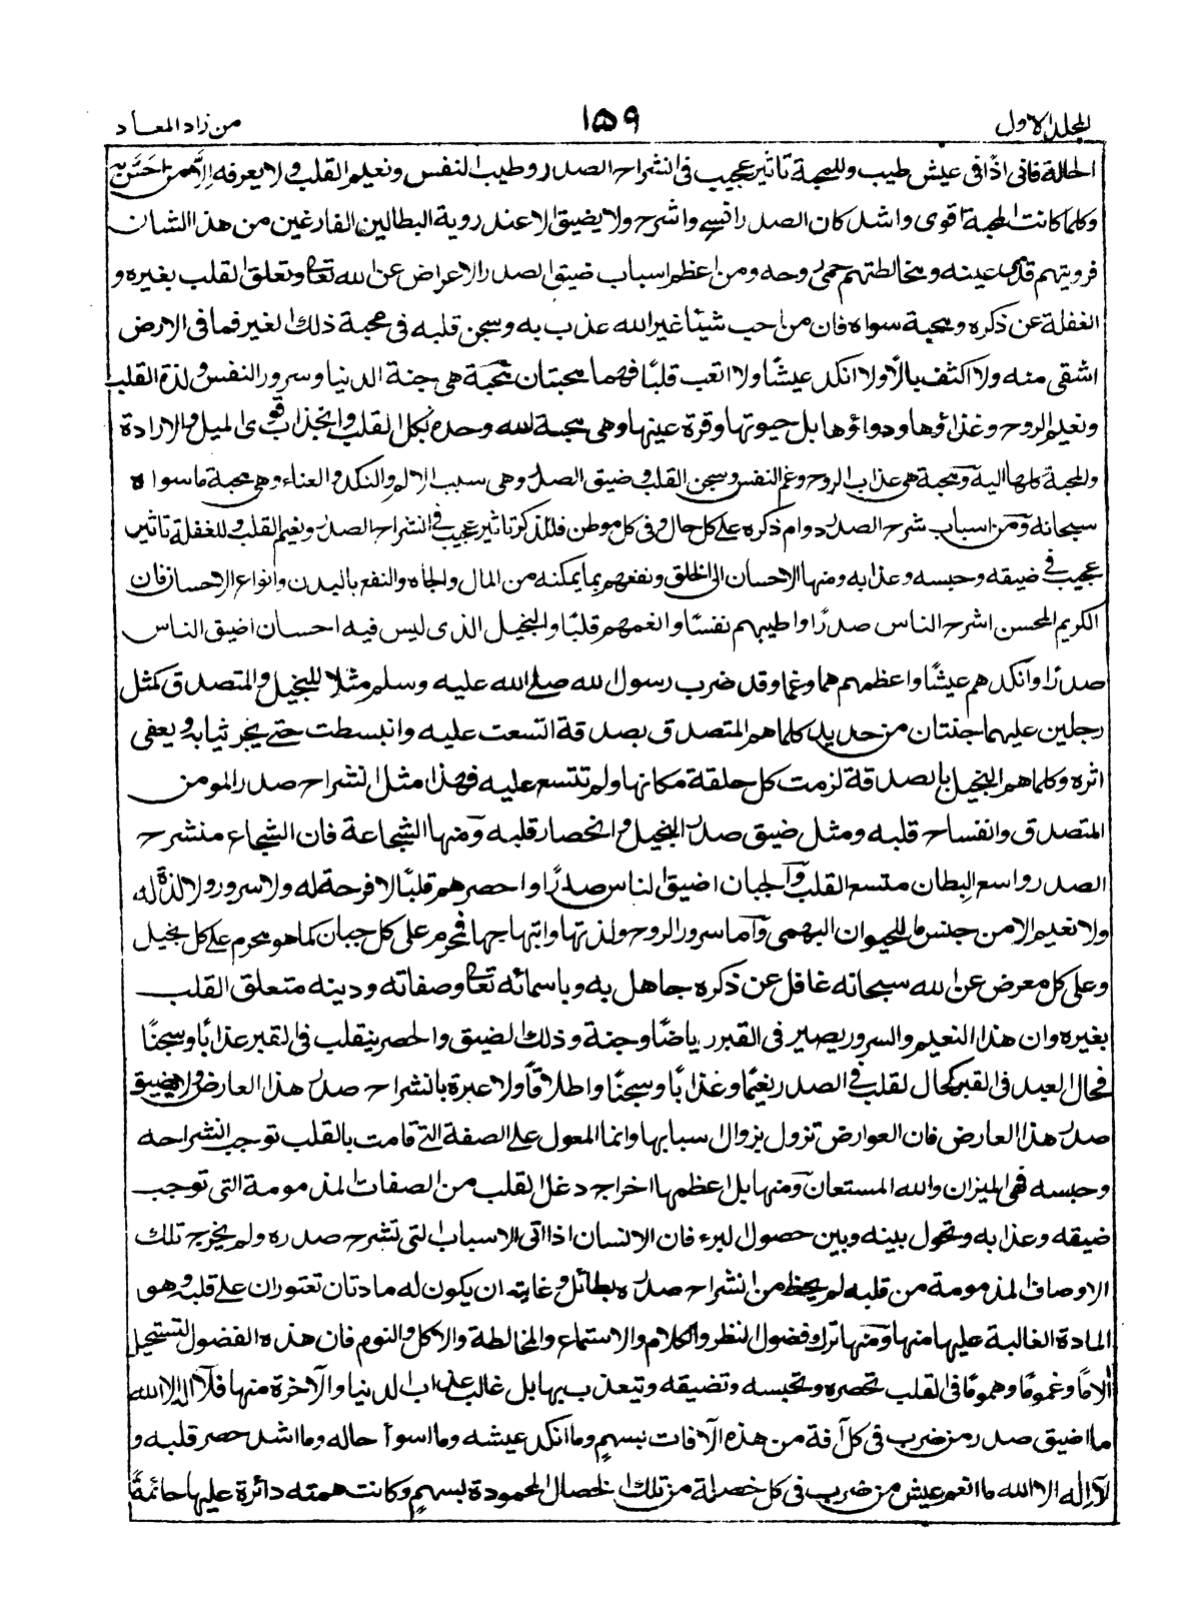 المجلد الاول
١٥٩
من زاد المعاد
الحالة فانى اذًا فى عيش طيب وللمحبة تاثير عجيب فى انشراح الصدر وطيب النفس ونعيم القلب ولا يعرفه اِلّا من احَسَّ به
وكلما كانت المحبة اقوى واشد كان الصدر افسح واشرح ولا يضيق الا عند روية البطالين الفارغين من هذا الشان
فرويتهم قذى عينه ومخالطتهم حمى روحه ومن اعظم اسباب ضيق الصدر الاعراض عن الله تعالى وتعلق القلب بغيره و
الغفلة عن ذكره ومحبة سواه فان من احب شيئا غير الله عذب به وسجن قلبه فى محبة ذلك الغير فما فى الارض
اشقى منه ولا اكثف بالًا ولا انكد عيشًا ولا اتعب قلبًا فهما محبتان محبة هى جنة الدنيا وسرور النفس ولذة القلب
ونعيم الروح وغذاؤها ودواؤها بل حيوتها وقرة عينها وهى محبة الله وحده بكل القلب وانجذاب قوى الميل والارادة
والمحبة كلها اليه ومحبة هى عذاب الروح وغم النفس وسجن القلب وضيق الصدر وهى سبب الالم والنكد والعناء وهى محبة ما سواه
سبحانه ومن اسباب شرح الصدر دوام ذكره على كل حال وفى كل موطن فللذكر تاثير عجيب فى انشراح الصدر ونعيم القلب وللغفلة تاثير
عجيب فى ضيقه وحبسه وعذابه ومنها الاحسان الى الخلق ونفعهم بما يمكنه من المال والجاه والنفع بالبدن وانواع الاحسان فان
الكريم المحسن اشرح الناس صدرًا واطيبهم نفسًا وانعمهم قلبًا والبخيل الذى ليس فيه احسان اضيق الناس
صدرًا وانكدهم عيشًا واعظمهم هما وغما وقد ضرب رسول الله صلى الله عليه وسلم مثلا للبخيل والمتصدق كمثل
رجلين عليهما جنتان من حديد كلما هم المتصدق بصدقة اتسعت عليه وانبسطت حتى يجر ثيابه ويعفى
اثره وكلما هم البخيل بالصدقة لزمت كل حلقة مكانها ولم تتسع عليه فهذا مثل انشراح صدر المومن
المتصدق وانفساح قلبه ومثل ضيق صدر البخيل وانحصار قلبه ومنها الشجاعة فان الشجاع منشرح
الصدر واسع البطان متسع القلب والجبان اضيق الناس صدرًا واحصرهم قلبًا لا فرحة له ولا سرور ولا لذة له
ولا نعيم الا من جنس ما للحيوان البهمى واما سرور الروح ولذتها وابتهاجها فمحرم على كل جبان كما هو محرم على كل بخيل
وعلى كل معرض عن الله سبحانه غافل عن ذكره جاهل به وباسمائه تعالى وصفاته ودينه متعلق القلب
بغيره وان هذا النعيم والسرور يصير فى القبر رياضًا وجنة وذلك الضيق والحصر ينقلب فى القبر عذابًا وسجنًا
فحال العبد فى القبر كحال القلب فى الصدر نعيمًا وعذابًا وسجنًا واطلاقًا ولا عبرة بانشراح صدر هذا العارض ولا بضيق
صدر هذا العارض فان العوارض تزول بزوال اسبابها وانما المعول على الصفة التى قامت بالقلب توجب انشراحه
وحبسه فهى الميزان والله المستعان ومنها بل اعظمها اخراج دغل القلب من الصفات المذمومة التى توجب
ضيقه وعذابه وتحول بينه وبين حصول البرء فان الانسان اذا اتى الاسباب التى تشرح صدره ولم يخرج تلك
الاوصاف المذمومة من قلبه لم يحظ من انشراح صدره بطائل وغايته ان يكون له مادتان تعتوران على قلبه وهو
المادة الغالبة عليها منها ومنها ترك فضول النظر والكلام والاستماع والمخالطة والاكل والنوم فان هذه الفضول تستحيل
آلامًا وغمومًا وهمومًا فى القلب تحصره وتحبسه وتضيقه ويتعذب بها بل غالب عذاب الدنيا والآخرة منها فلآ اله الا الله
ما اضيق صدر من ضرب فى كل آفة من هذه الآفات بسهم وما انكد عيشه وما اسوأ حاله وما اشد حصر قلبه و
لآ اله الا الله ما انعم عيش من ضرب فى كل خصلة من تلك الخصال المحمودة بسهم وكانت همته دائرة عليها حائمةً